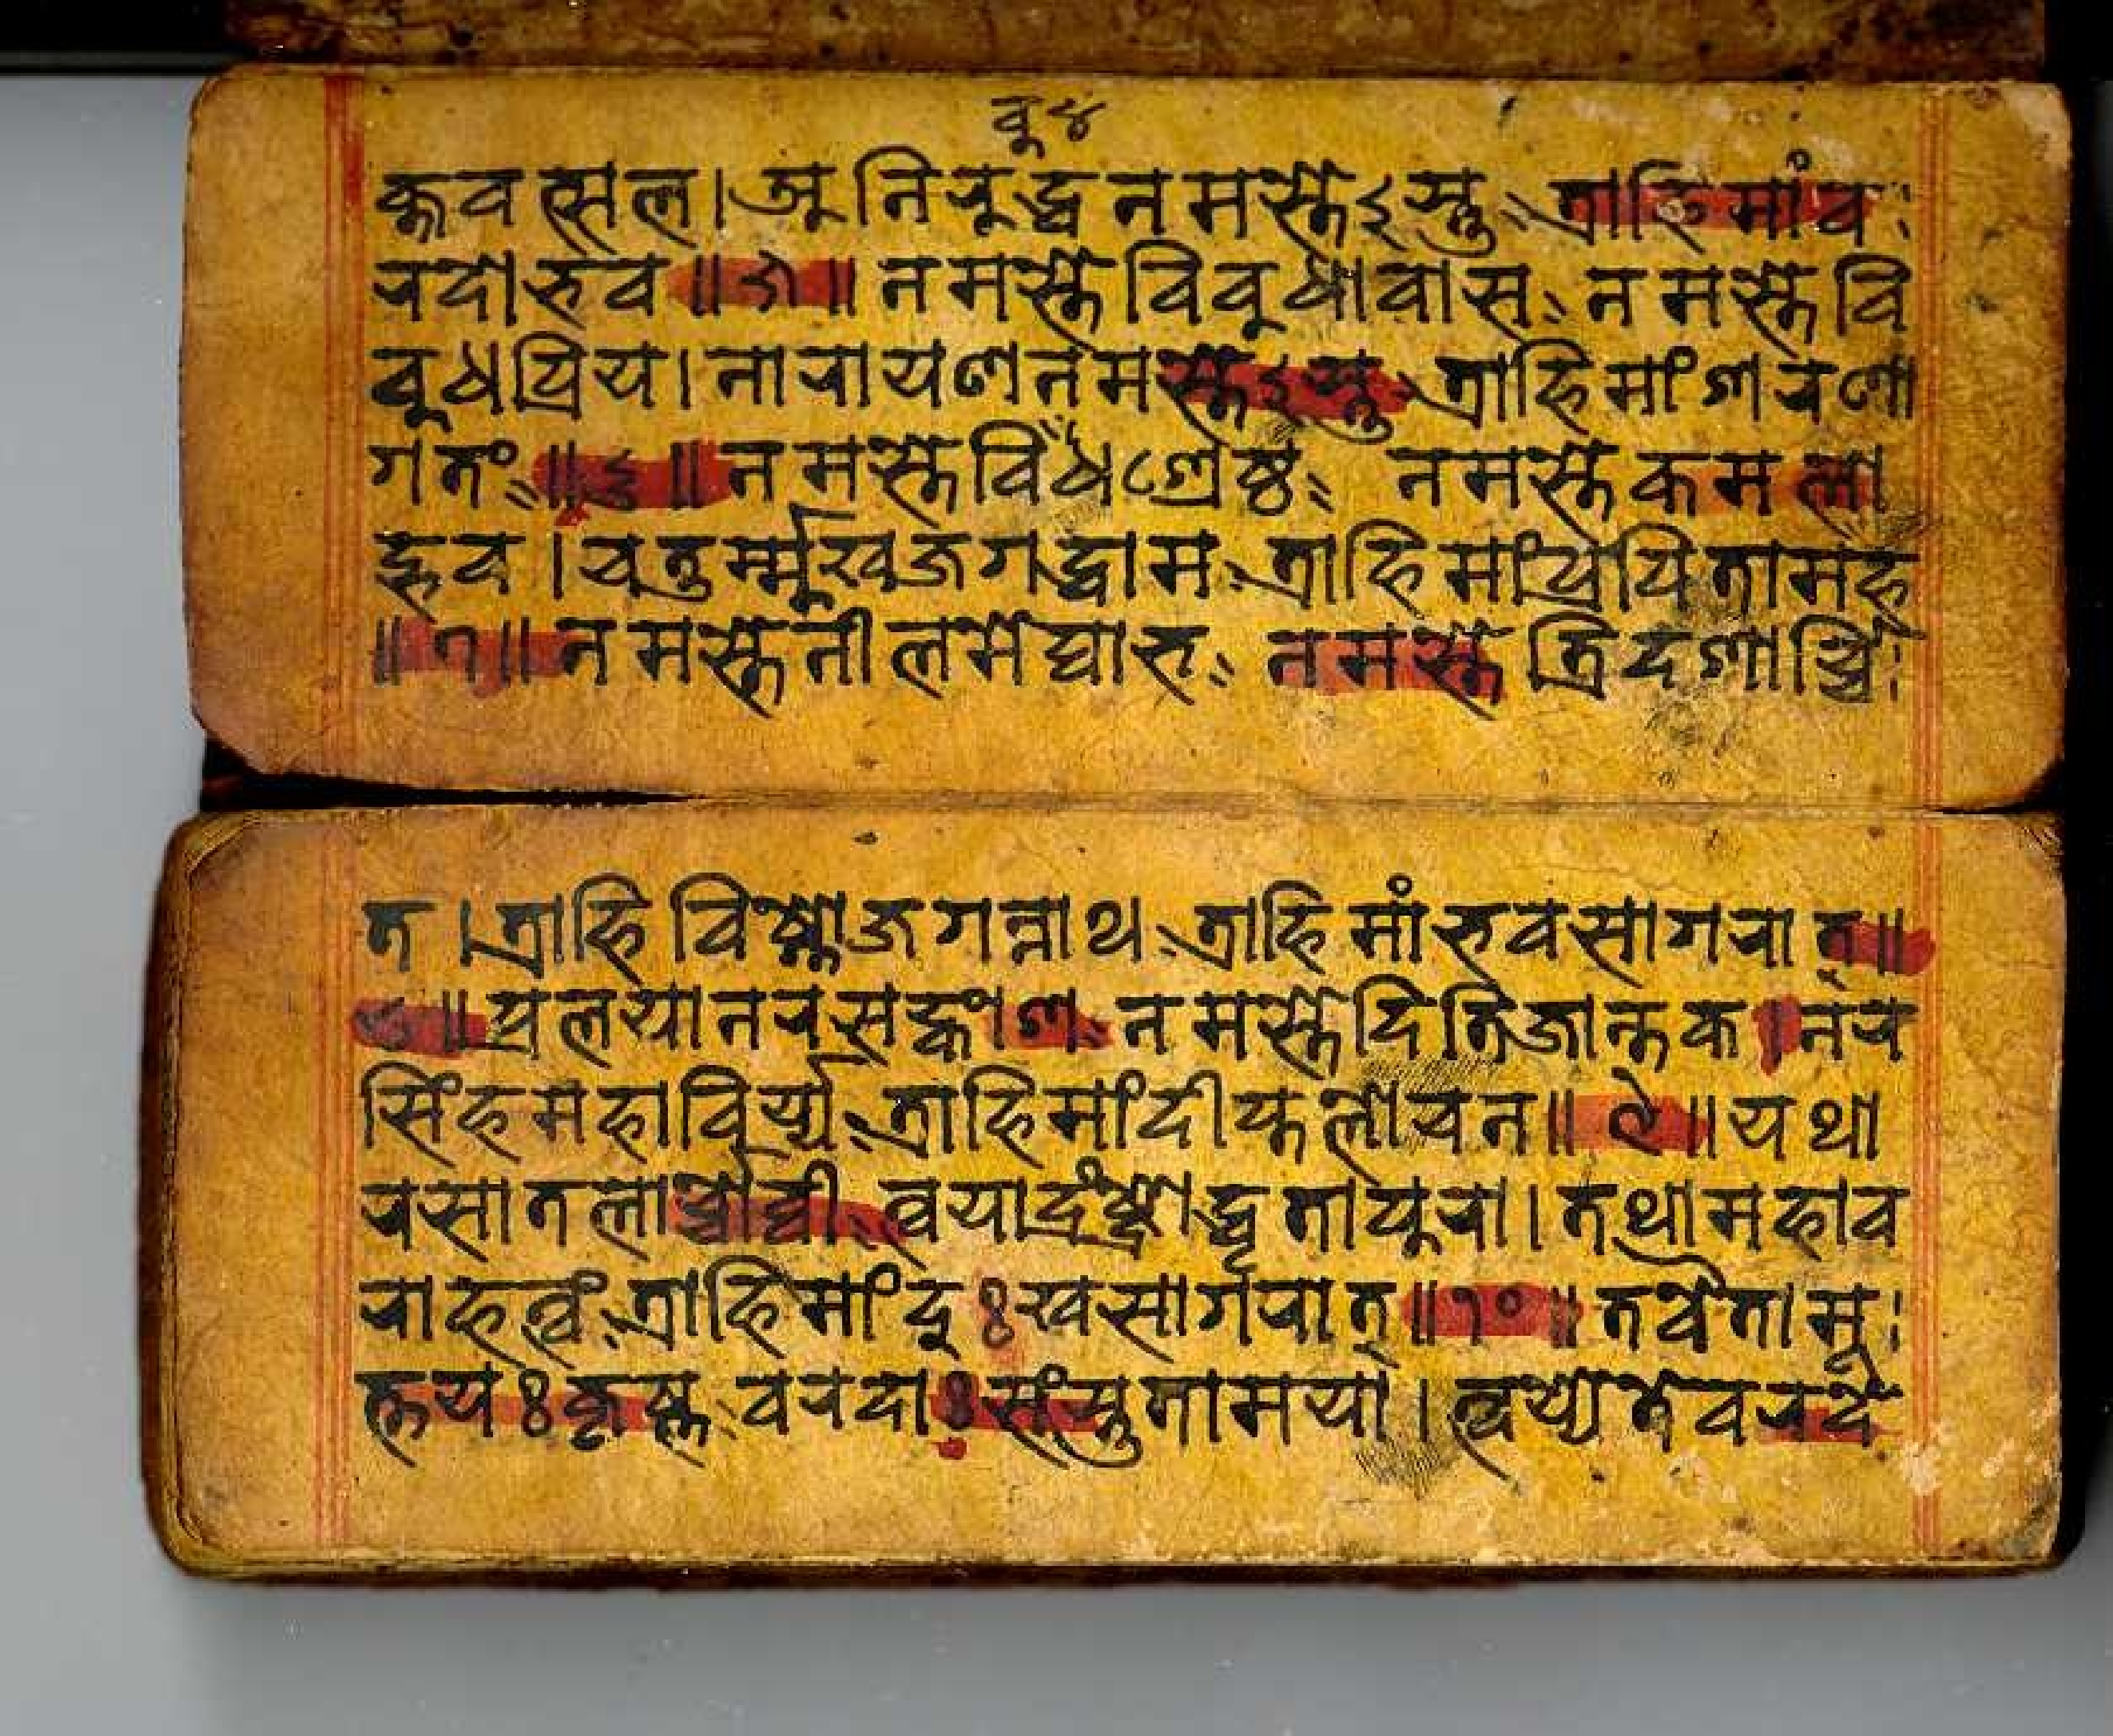 बु ४
क्तवत्सल। अनिरुद्ध नमस्तेऽस्तु त्राहि मां व
रदो भव ॥ ५ ॥ नमस्ते विबुधावास नमस्ते वि
बुधप्रिय। नारायण नमस्तेऽस्तु त्राहि मां शरणा
गतं ॥ ६ ॥ नमस्ते विधिश्रेष्ठ नमस्ते कमलो
द्भव। चतुर्म्मुख जगद्धाम त्राहि मां प्रपितामह
॥ ७ ॥ नमस्ते नीलमेघाभ नमस्ते त्रिदशार्च्चि
त। त्राहि विष्णो जगन्नाथ त्राहि मां भवसागरात् ॥
८ ॥ प्रलयानरसङ्काश नमस्ते दितिजान्तक। नर
सिंह महाविर्य्य त्राहि मां दीप्तलोचन ॥ ९ ॥ यथा
रसातलाच्चोर्व्वी त्वया दंष्ट्रोद्धृता पुरा। तथा महाव
राह त्वं त्राहि मां दुःखसागरात् ॥ १० ॥ तवैता मू
र्त्तयः कृष्ण वरदाः संस्तुता मया। त्वय्येते वरदे